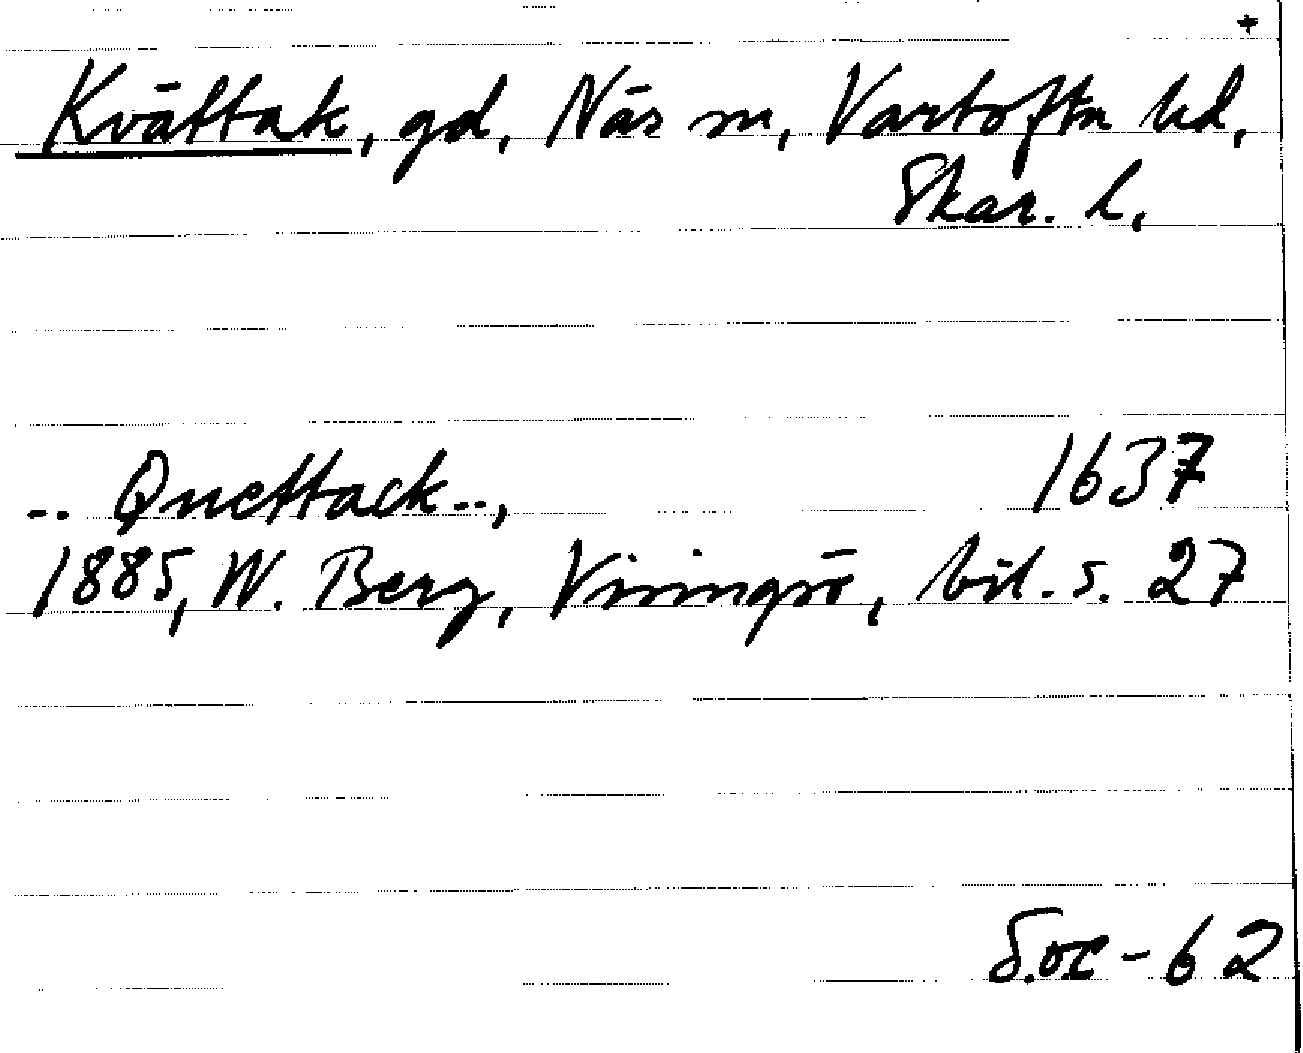 +
Kvättak, gd, Näs sn, Vartofta hd,
Skar. l.
.. Quettack..,
1637
1885, W. Berg, Visingsö, bil. s. 27
-62